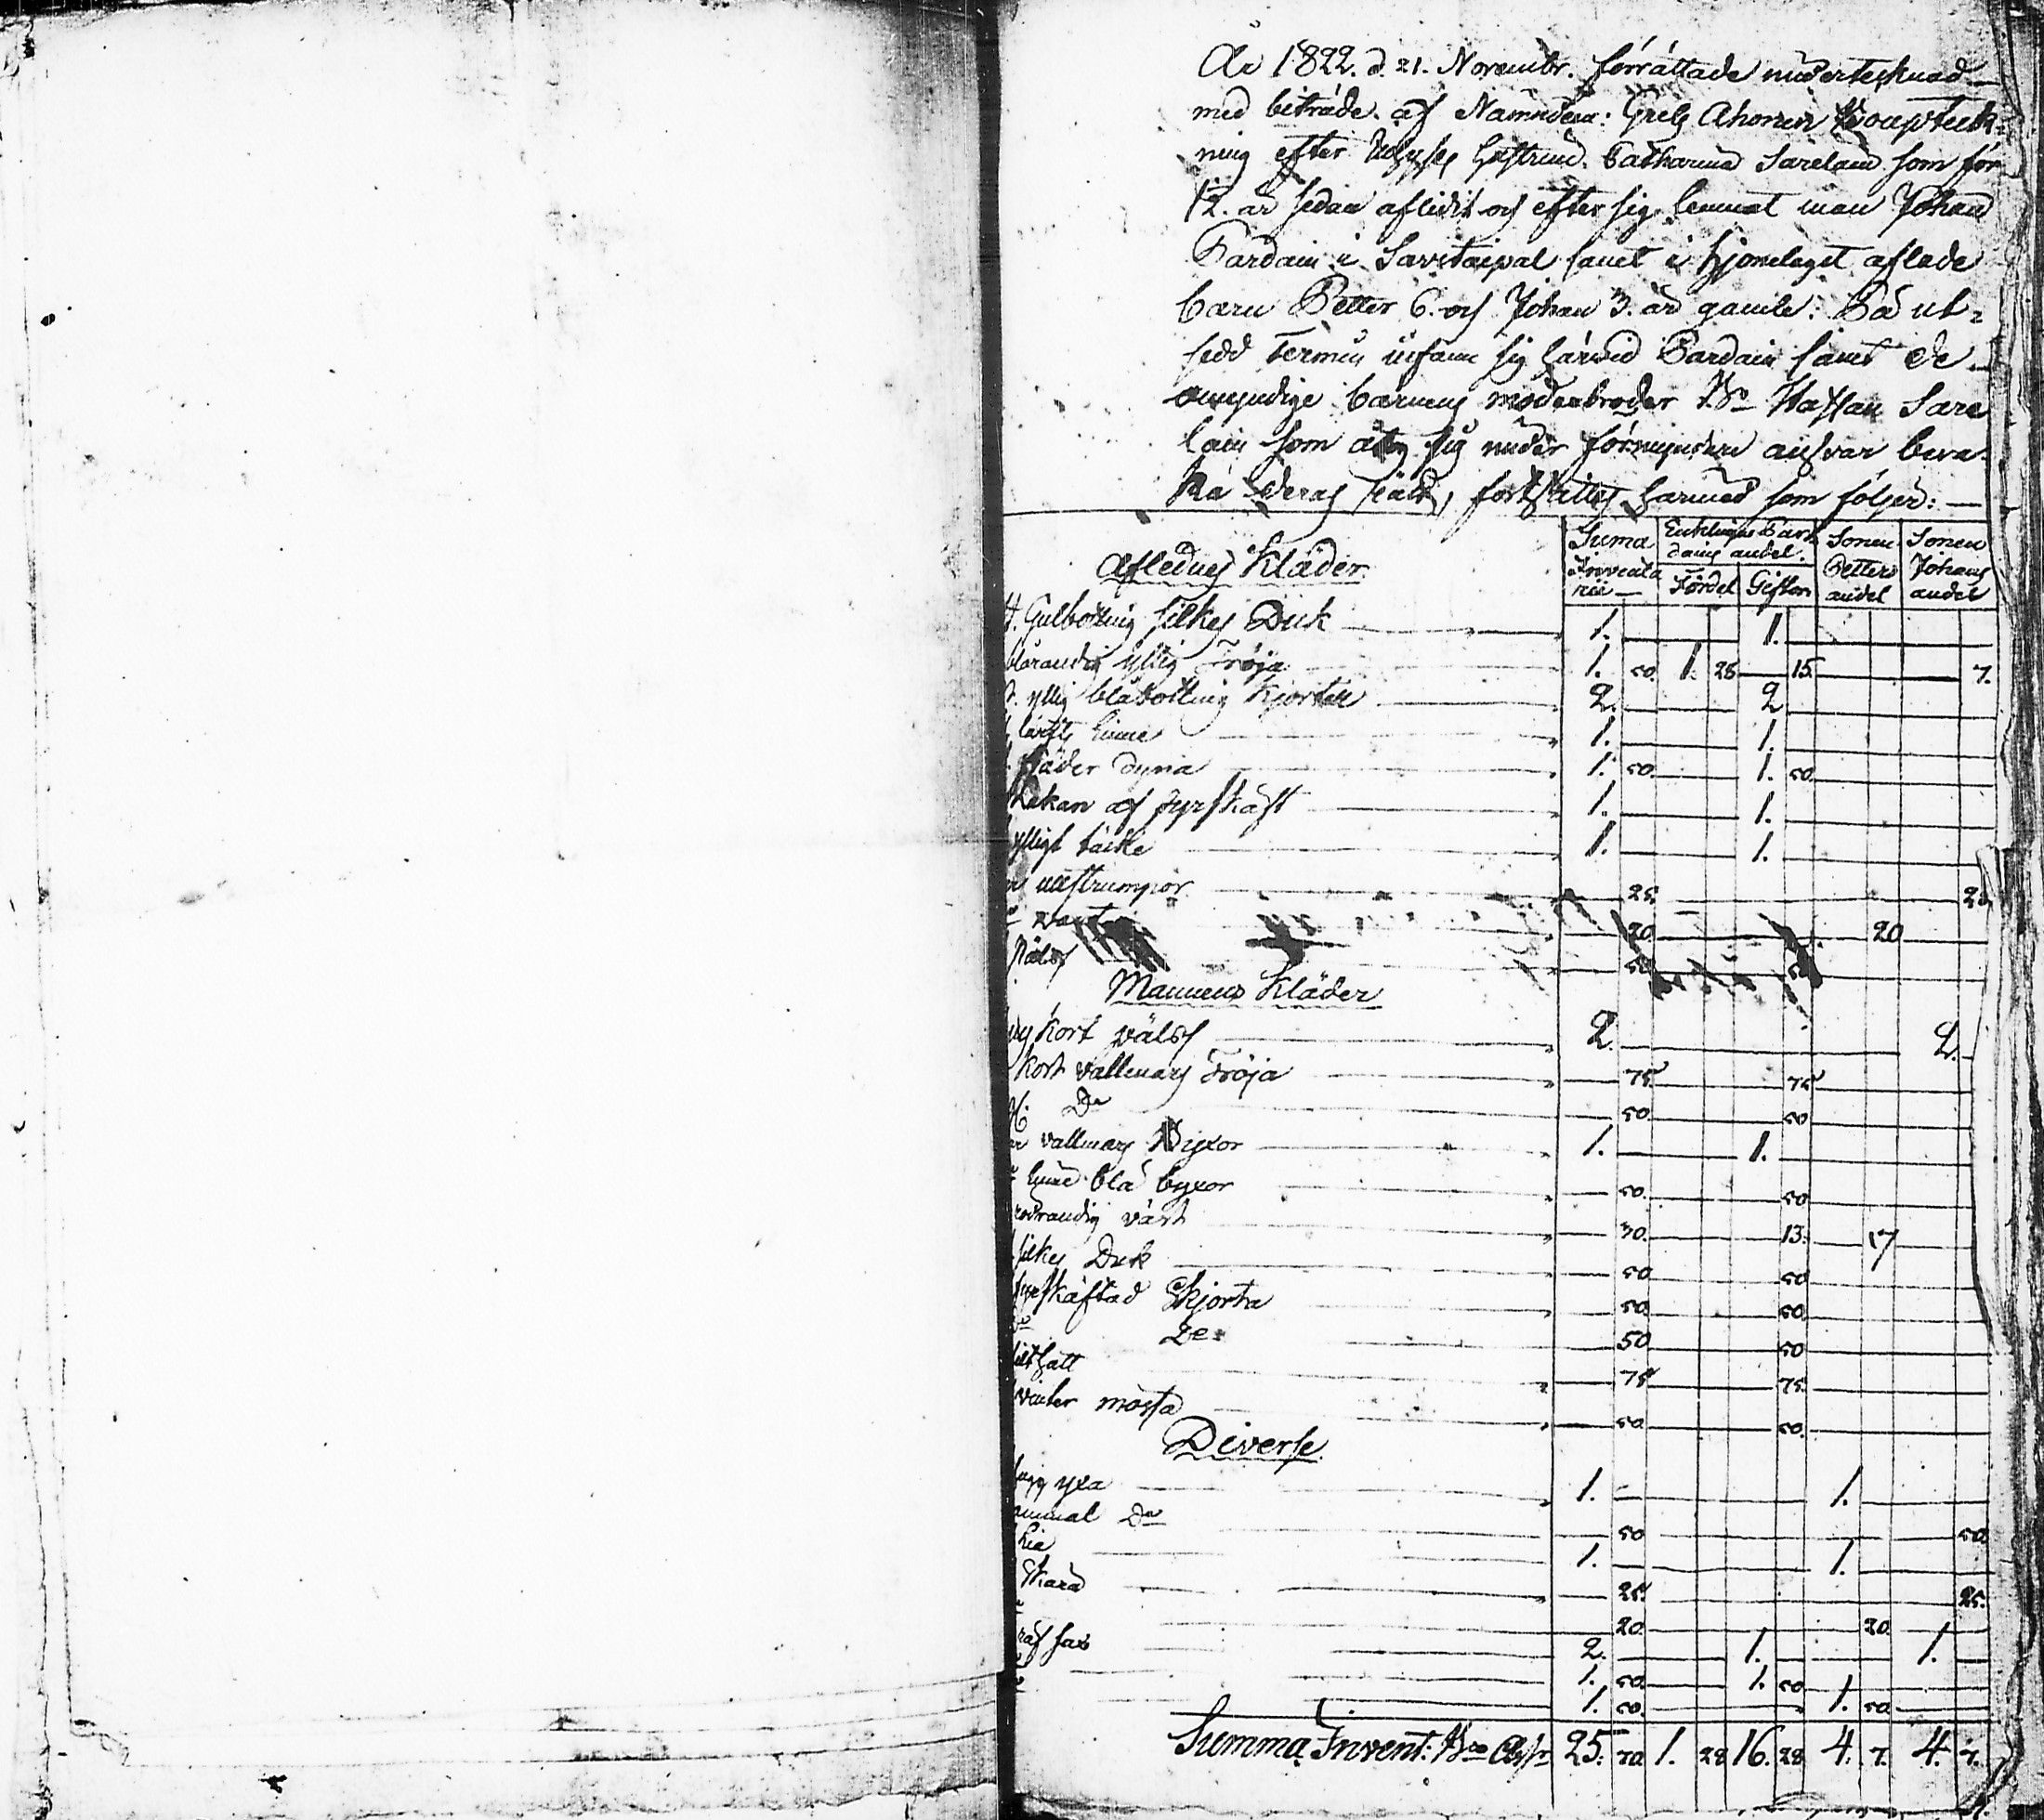 År 1822. d. 21. Novembr. förrättade undertecknad
med biträde af Nämndem: Grels Ahonen Bouptek-
ning efter Hustrun Catharina Sarelain som för
1/2 år sedan aflidit och efter sig lemnat man Johan
Pardain i Savitaipal samt i hjonelaget aflade
barn Petter 6. och Johan 3. år gamle: På ut-
sedd Termin infann sig härvid Pardain samt de
omyndige barnens moderbroder Bd Staffan Sare
lain som åtog sig under förmyndare answar beva-
ka deras rätt, fortsattes härmed som följer:
Suma Inventa rie Enklings Par dains andel. Fördel Giftorr Sonen Petters andel Sonen Johans andel
Aflednes Kläder
Gulbotting silkes Duk 1. 1.
blårandig yllig Tröja 1. 50. 1. 28 15. 7.
yllig blåbotting Kjortel 2. 2
lärfts 1. 1.
fjäder dyna 1. 50. 1. 50.
Lakan af fyrskäft 1. 1.
ylligt täcke 1. 1.
ullstrumpor 25. 25.
20. 20
Päls 50 50
Mannens Kläder
kort päls 2. 2.
kort vallmars Tröja 75 75
Do 50. 50
vallmars Byxor 1. 1.
blå byxor 50. 50
rödrandig väst 30. 13. 17
silkes Duk 50 50
fyrskäftad Skjorta 50. 50.
Do 50 50
filt hatt 75 75.
vinter mössa 50. 50.
Diverse
hugg yxa 1. 1.
gammal Do 50 50.
Lia 1. 1.
Skära 25. 25.
20. 20.
räf sax 2. 1. 1.
1. 50. 1. 50
1. 50. 1. 50.
Summa Invent: Bco Assr 25. 70. 1. 28 16. 28 4. 7. 4. 7.